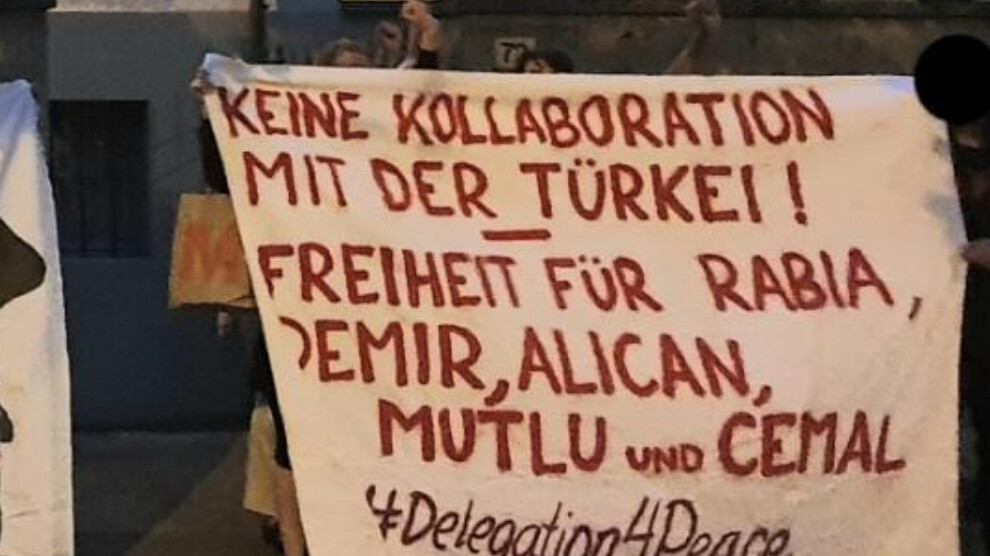 KEINE KOLLABORATION
MIT DER TÜRKEI!
FREIHEIT FÜR RABIA,
DEMIR, ALICAN,
MUTLU UND CEMAL
#Delegation4Peace